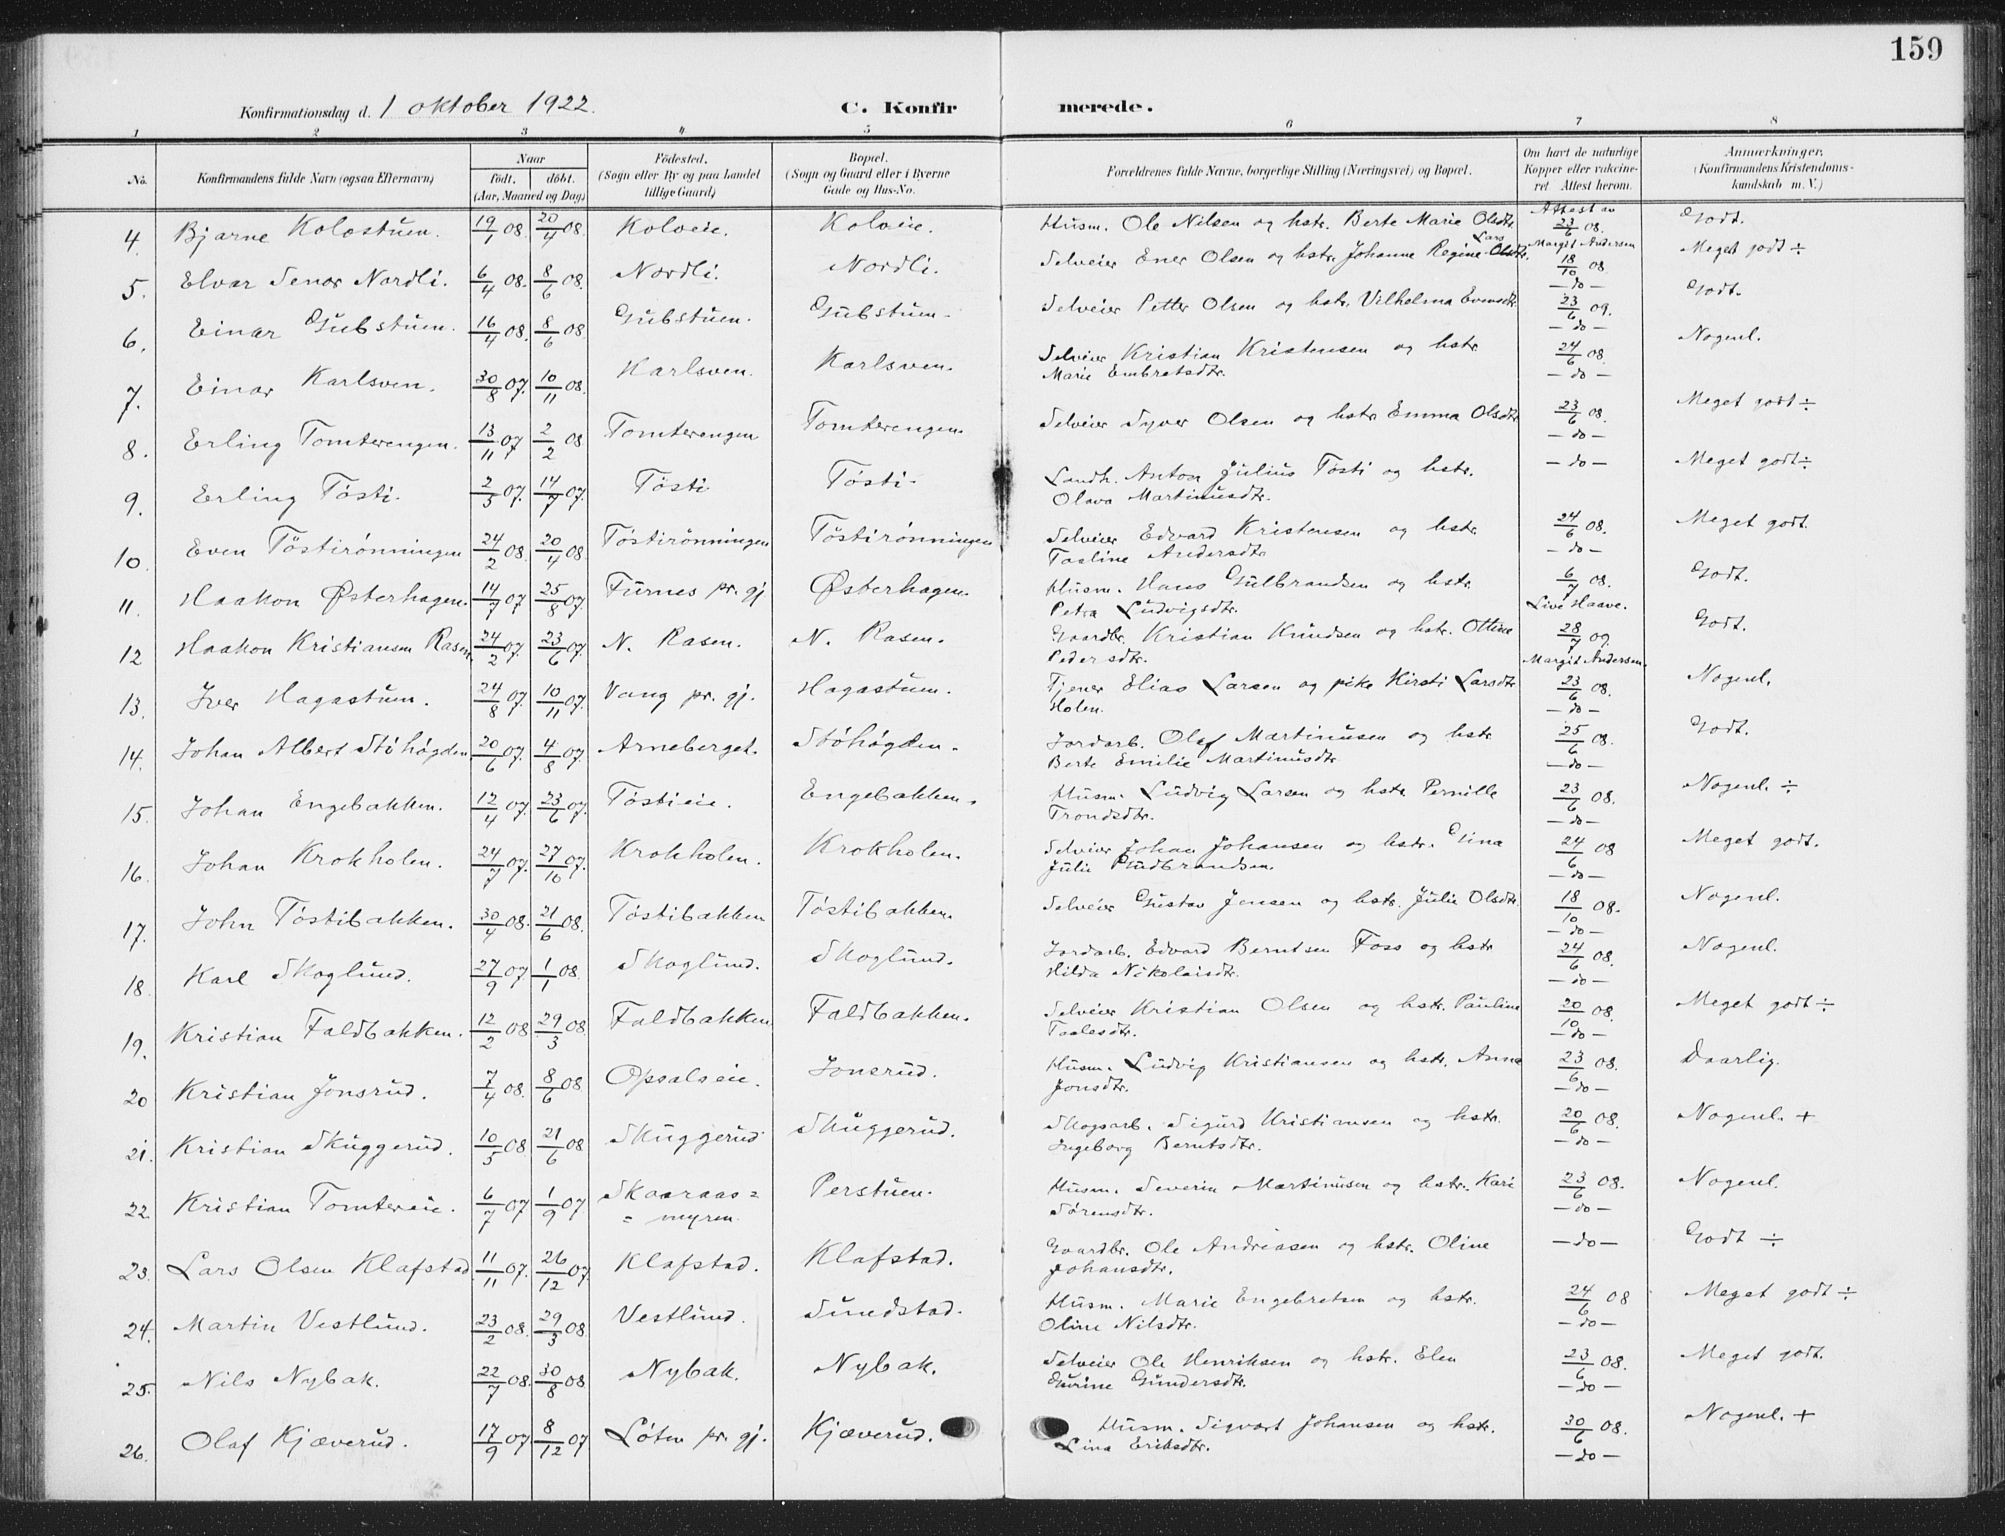 159
Konfirmationsdag d. 1 oktober 1922. C. Konfirmerede.
1 2 3 4 5 6 7 8
No. Konfirmandens fulde Navn (ogsaa Efternavn) Naar født, døbt. (Aar, Maaned og Dag) Fødested. (Sogn eller By og paa Landet tillige Gaard) Bopæl. (Sogn og Gaard eller i Byerne Gade og Hus-No. Forældrenes fulde Navne, borgerlige Stilling (Næringsvei) og Bopæl. Om havt de naturlige Kopper eller vakcineret. Attest herom. Anmærkninger. (Konfirmandens Kristendomskundskab m. V.)
4. Bjarne Kolostuen. 19/1 08. 20/4 08. Koloeie. Koloeie. Husm. Ole Nilsen og hstr. Berte Marie Olsdtr. Attest av 23/6 08. Margit Andersen Godt.
5. Elvar Senor Nordli. 6/4 08. 8/6 08. Nordli. Nordli. Selveier Ener Olsen og hstr. Johanne Regine Larsdtr. 18/10 08 —do— Meget godt ÷
6. Einar Gubstuen. 16/4 08. 8/6 08 Gubstuen. Gubstuen. Selveier Petter Olsen og hstr. Vilhelma Evensdtr. 23/6 09. —do— Godt.
7. Einar Karlsven. 30/8 07. 10/11 08. Karlsven. Karlsven. Selveier Kristian Kristensen og hstr. Marie Embretsdtr. 24/6 08. —do— Nogenl.
8. Erling Tomterengen. 13/11 07 2/2 08 Tomterengen Tomterengen. Selveier Syver Olsen og hstr Emma Olsdtr. 23/6 08. —do— Meget godt ÷
9. Erling Tøsti. 2/5 07. 14/7 07. Tøsti Tøsti. Landh. Anton Julius Tøsti og hstr. Olava Martinusdtr. —do— Meget godt ÷
10. Even Tøstirønningen 24/2 08. 20/4 08. Tøstirønningen Tøstirønningen Selveier Edvard Kristensen og hstr. Taaline Andersdtr 24/6 08. —do— Meget godt.
11. Haakon Østerhagen. 14/7 07 25/8 07. Furnes pr. gj Østerhagen. Husm. Hans Gulbrandsen og hstr. Petra Ludvigsdtr. 6/7 08. Live Haave. Godt.
12 Haakon Kristiansen Rasen. 24/2 07. 23/6 07. N. Rasen. N. Rasen. Gaardbr. Kristian Knudsen og hstr. Ottine Pedersdtr. 28/7 09 Margit Andersen. Godt.
13. Iver Hagastuen. 24/8 07. 10/11 07. Vang pr. gj. Hagastuen. Tjener Elias Larsen og pike Kirsti Larsdtr Holen. 23/6 08. —do— Nogenl.
14. Johan Albert Støhøgden. 20/6 07. 4/8 07. Arneberget. Støhøgden. Jordarb. Olaf Martinusen og hstr. Berte Emilie Martinusdtr. 25/6 08. —do— Godt.
15. Johan Engebakken. 12/4 07. 23/6 07. Tøstieie. Engebakken. Husm. Ludvig Larsen og hstr Pernille Trondsdtr. 23/6 08. —do— Nogenl. ÷
16. Johan Krokholen. 24/7 07. 27/10 07. Krokholen. Krokholen. Selveier Johan Johansen og hstr. Gina Julie Gudbrandsen. 24/6 08 —do— Meget godt.
17. John Tøstibakken. 30/4 08. 21/6 08. Tøstibakken Tøstibakken. Selveier Gustav Jensen og hstr. Julie Olsdtr. 18/10 08. —do— Nogenl.
18. Karl Skoglund. 27/9 07 1/1 08. Skoglund. Skoglund. Jordarb. Edvard Berntsen Foss og hstr Hilda Nikolaisdtr. 24/6 08. —do— Nogenl.
19. Kristian Faldbakken. 12/2 08 29/3 08. Faldbakken. Faldbakken. Selveier Kristian Olsen og hstr. Pauline Taalesdtr. 20/10 08. —do— Meget godt ÷
20 Kristian Jonsrud. 7/4 08. 8/6 08 Opsalseie. Jonsrud. Husm. Ludvig Kristiansen og hstr. Anna Jonsdtr. 23/6 08. —do— Daarlig.
21. Kristian Skuggerud. 10/5 08 21/6 08 Skuggerud Skuggerud. Skogsarb. Sigurd Kristiansen og hstr. Ingeborg Berntsdtr. 20/6 08. —do— Nogenl. +
22. Kristian Tomtereie. 6/7 07 1/9 07 Skaaraas= =myren. Perstuen. Husm. Severin Martinusen og hstr. Kari Sørensdtr. 23/6 08. —do— Nogenl.
23. Lars Olsen Klafstad 11/11 07. 26/12 07. Klafstad. Klafstad. Gaardbr. Ole Andreasen og hstr. Oline Johansdtr. —do— Godt ÷
24. Martin Vestlund. 23/2 08. 29/3 08. Vestlund. Sundstad. Husm. Marie Engebretsen og hstr. Oline Nilsdtr. 24/6 08 —do— Meget godt ÷
25. Nils Nybak. 22/7 08. 30/8 08 Nybak. Nybak. Selveier Ole Henriksen og hstr. Elen Gurine Gundersdtr. 23/6 08. —do— Meget godt.
26. Olaf Kjæverud. 17/9 07 8/12 07 Løten pr. gj. Kjæverud. Husm. Sigvart Johansen og hstr. Lina Eriksdtr. 30/6 08. —do— Nogenl. +